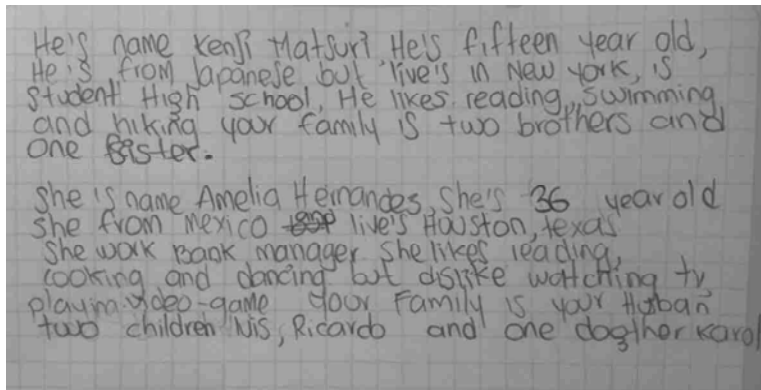 He's name Kenji Matsuri He's fifteen year old,
He is from Japanese but live's in New york, is
Student High school, He likes reading, swimming
and hiking your family is two brothers and
one sister.
She is name Amelia Hernandes, She's 36 year old
She from mexico live's Houston, texas
She work Bank manager she likes reading,
cooking and dancing but dislike watching tv
playing video-game your Family is your Husban
two children Nis, Ricardo and one dogther karol